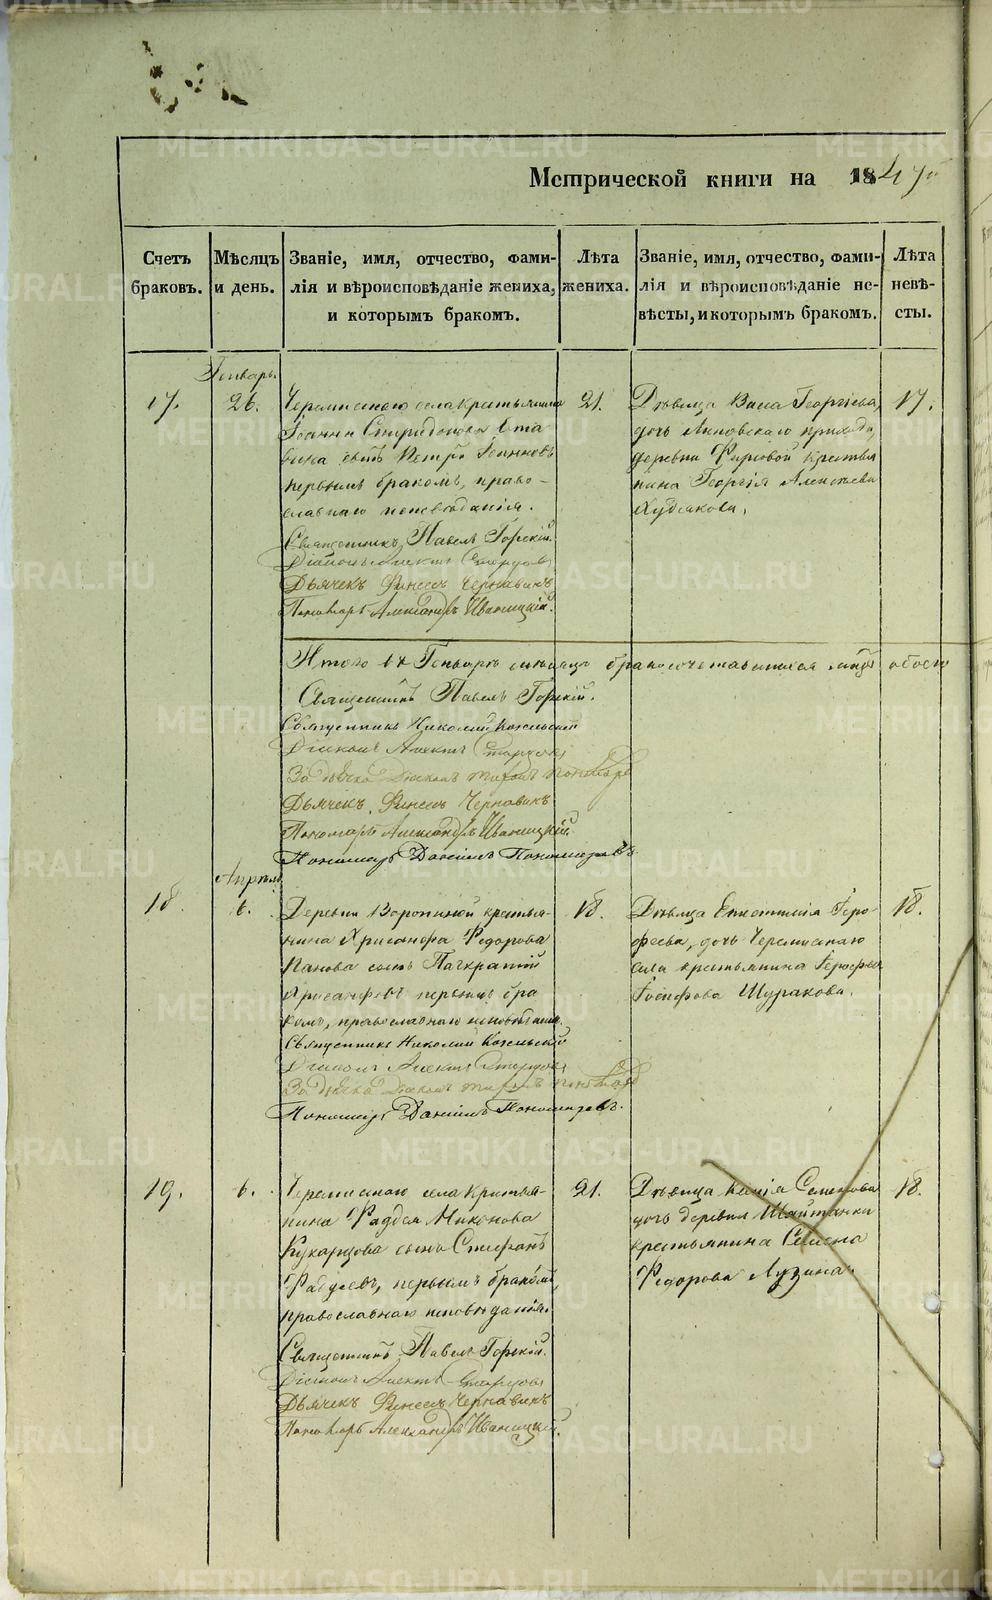 Метрической книги на 1847й
Счетъ браковъ.
Мѣсяцъ и день.
Званіе, имя, отчество, фами-
лія и вѣроисповѣданіе жениха,
и которымъ бракомъ.
Лѣта
жениха.
Званіе, имя, отчество, фами-
лія и вѣроисповѣданіе не-
вѣсты, и которымъ бракомъ.
Лѣта
невѣ-
сты.
Генварь
17.
26.
Черемисскаго села крестьянина
Іоанна Спиридонова
сынъ Петръ Іоанновъ
первымъ бракомъ, право-
славнаго исповѣданія.
Священникъ Павелъ Горскій.
Діаконъ
Дьячекъ Финеесъ Чернавинъ
Пономарь Александръ Иваницкій.
21.
Дѣвица Васса Георгіева,
дочь Липовскаго прихода,
деревни Фирсовой крестья
нина Георгія Алексѣева
Худякова.
17.
Итого въ Генварѣ мѣсяцѣ бракосочетавшихся лицъ обоего
Священникъ Павелъ Горскій.
Священникъ Николай
Діаконъ
За дьячка Діаконъ
Дьячекъ Финеесъ Чернавинъ
Пономарь Александръ Иваницкій.
Пономарь Даніилъ Пономаревъ
Апрѣль
18.
6.
Деревни Ворониной крестья-
нина Хрисанфа Федорова
Панова сынъ Панкратій
Хрисанфовъ первымъ бра
комъ, православнаго исповѣданія.
Священникъ Николай
Діаконъ
За дьячка Діаконъ
Пономарь Даніилъ Пономаревъ.
18.
Дѣвица Іеро-
феева, дочь Черемисскаго
села крестьянина Іерофея
Іосифова Шуракова.
18.
19.
6.
Черемисскаго села крестья-
нина Фаддея Миконова
Кукарцова сынъ Стефанъ
Фаддеевъ, первымъ бракомъ,
православнаго исповѣданія.
Священникъ Павелъ Горскій.
Діаконъ
Дьячекъ Финеесъ Чернавинъ
Пономарь Александръ Иваницкій.
21.
Дѣвица Ксенія Семенова
дочь деревни Шайтанки
крестьянина Семена
Федорова Лузина.
18.
METRIKI.GASO-URAL.RU